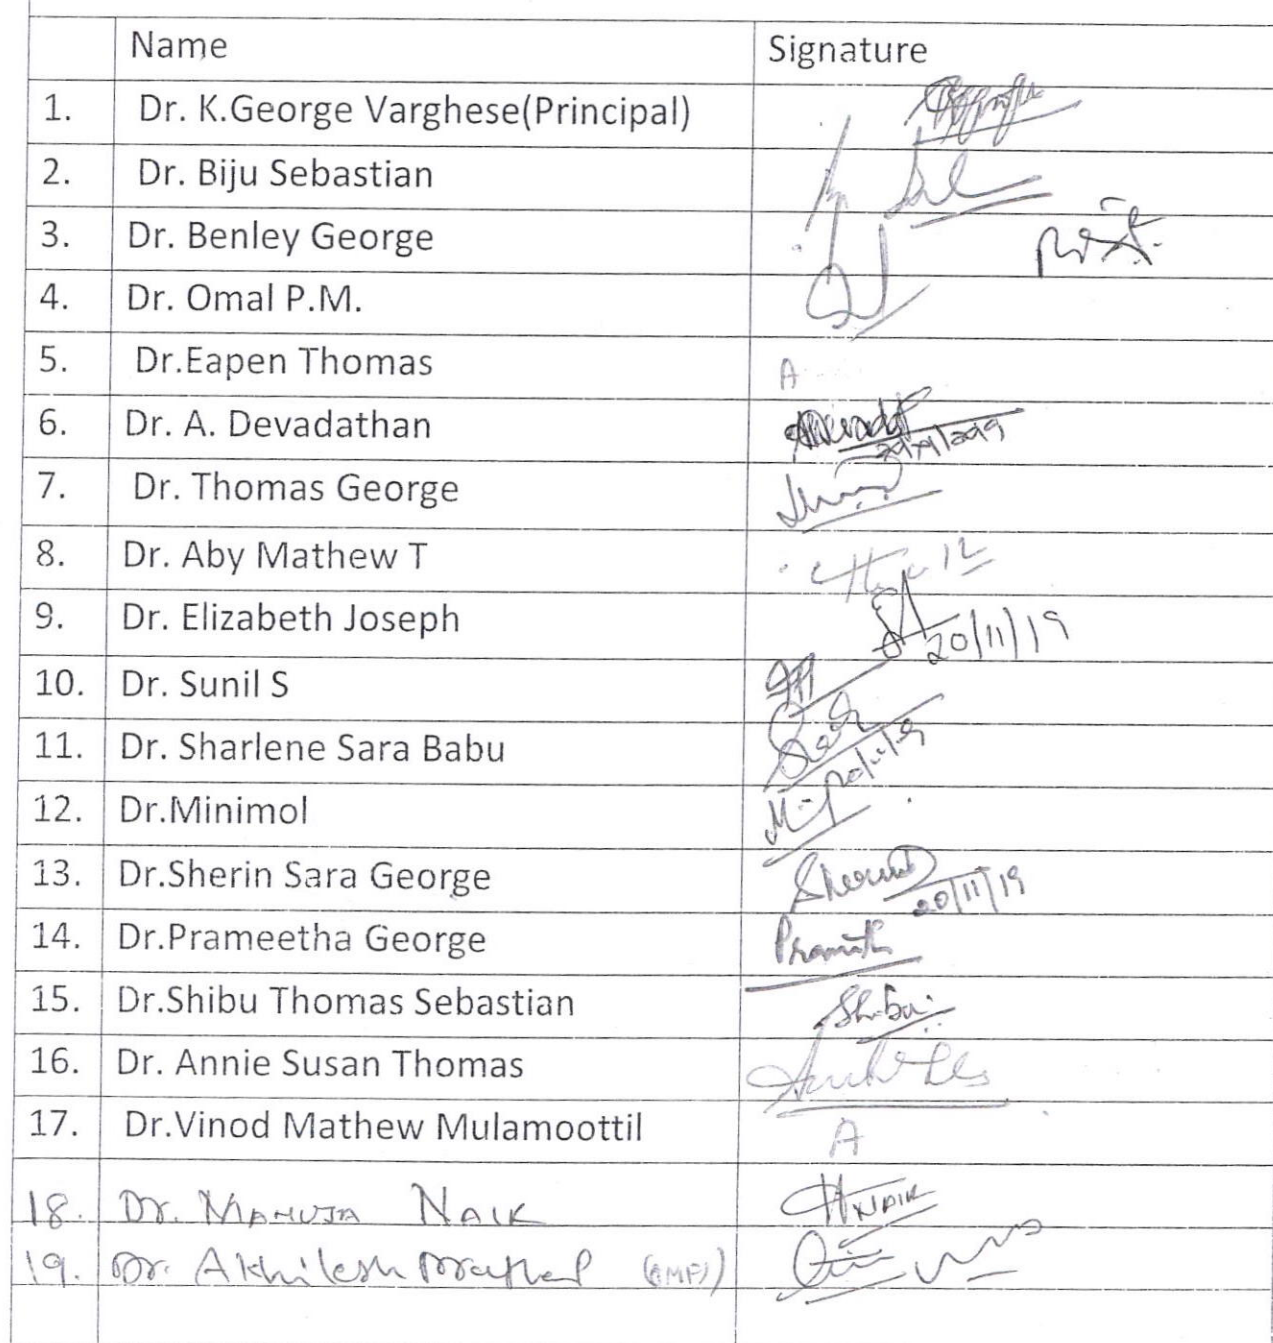 Name Signature
1. Dr. K.George Varghese(Principal)
2. Dr. Biju Sebastian
3. Dr. Benley George
4. Dr. Omal P.M.
5. Dr.Eapen Thomas A
6. Dr. A. Devadathan
7. Dr. Thomas George
8. Dr. Aby Mathew T
9. Dr. Elizabeth Joseph 20/11/19
10. Dr. Sunil S
11. Dr. Sharlene Sara Babu 20/11/19
12. Dr.Minimol
13. Dr.Sherin Sara George 20/11/19
14. Dr.Prameetha George
15. Dr.Shibu Thomas Sebastian Shibu
16. Dr. Annie Susan Thomas
17. Dr.Vinod Mathew Mulamoottil A
18. Dr. MAHUJA NAIK HNAIK
19. Dr. Akhilesh Prathap (OMFS)